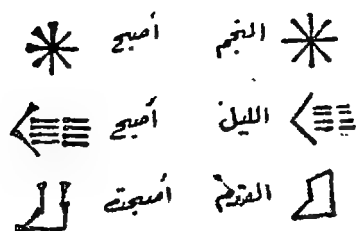 النجم أصبح
الليل أصبح
القدم أصبحت